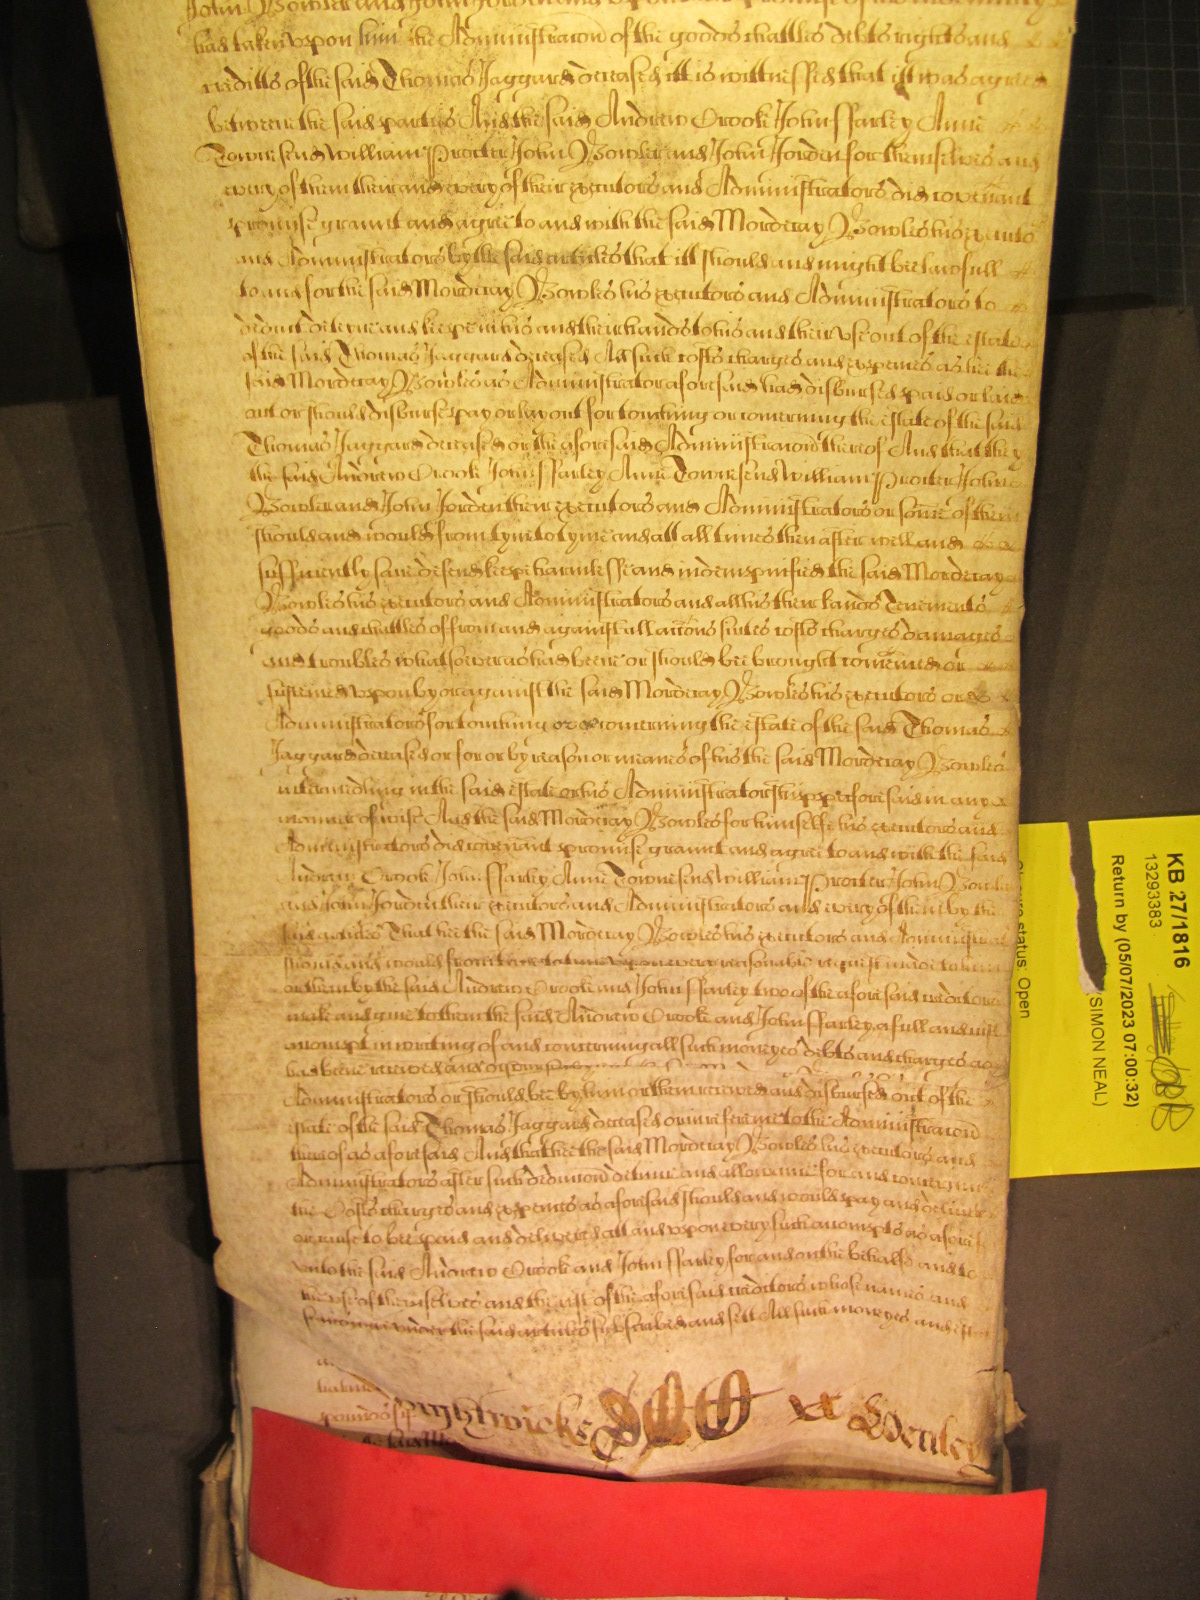 John Bowler and John Jorden
had taken vpon him the Administracon of the goods chattles debts rights and
creditts of the said Thomas Jaggard deceased itt is wittnessed that itt was agreed
betweene the said parties And the said Andrew Crooke John Ffarley Anne
Townesend William Procter John Bowler and John Jorden for themselves and
every of them their and every of their executors and Administrators did covenant
promise graunt and agree to and with the said Mordecay Bowles his executors
and Administrators by the said articles that itt should and might bee lawfull
to and for the said Mordecay Bowles his executors and Administrators to
deduct deteyne and keepe in his and their hands to his and their vse out of the estate
of the said Thomas Jaggard deceased All such costs charges and expences as hee the
said Mordecay Bowles as Administrator aforesaid had disbursed paid or laid
out or should disburse pay or lay out for touching or concerning the estate of the said
Thomas Jaggard deceased or the aforesaid Administracon thereof And that they
the said Andrew Crooke John Ffarley Anne Townesend William Procter John
Bowler and John Jorden their executors and Administrators or some of them
should and would from tyme to tyme and att all times then after well and
sufficiently save defend keepe harmlesse and indempnified the said Mordecay
Bowles his executors and Administrators and all his their lands Tenements
goods and chattles of from and against all accons suites costs charges damages
and troubles whatsoever as had beene or should bee brought comenced or
susteined vpon by or against the said Mordecay Bowles his executors or
Administrators for touching or concerning the estate of the said Thomas
Jaggard deceased or for or by reason or meanes of his the said Mordecay Bowles
intermedling in the said estate or his Administratorshipp aforesaid in any
manner of wise And the said Mordecay Bowles for himselfe his executors and
Administrators did covenant promise graunt and agree to and with the said
Andrew Crooke John Ffarley Anne Townesend William Procter John Bowler
and John Jorden their executors and Administrators and every of them by the
said articles That hee the said Mordecay Bowles his executors and Administrators
should and would from time to time vpon every reasonable request made to him
or them by the said Andrew Crooke and John Ffarley two of the aforesaid creditors
make and give to them the said Andrew Crooke and John Ffarley a full and iust
accompt in writing of and concerning all such moneyes debts and charges as
had beene received and
Administrators or should bee by him or them received and disbursed out of the
estate of the said Thomas Jaggard deceased or in reference to the Administracon
thereof as aforesaid And that hee the said Mordecay Bowles his executors and
Administrators after such deduccon detinue and allowance for and concerning
the Costs charges and expences as aforesaid should and would pay and deliver
or cause to bee paid and delivered all and vpon every such accompts as aforesaid
vnto the said Andrew Crooke and John Ffarley for and on the behalfe and to
the vse of themselves and the rest of the aforesaid creditors whose names and
the said articles subscribed and sett All such moneyes and
Wightwicke
et Henley
KB 27/1816
13293383
Return by (05/07/2023 07:00:32)
(SIMON NEAL)
status: Open